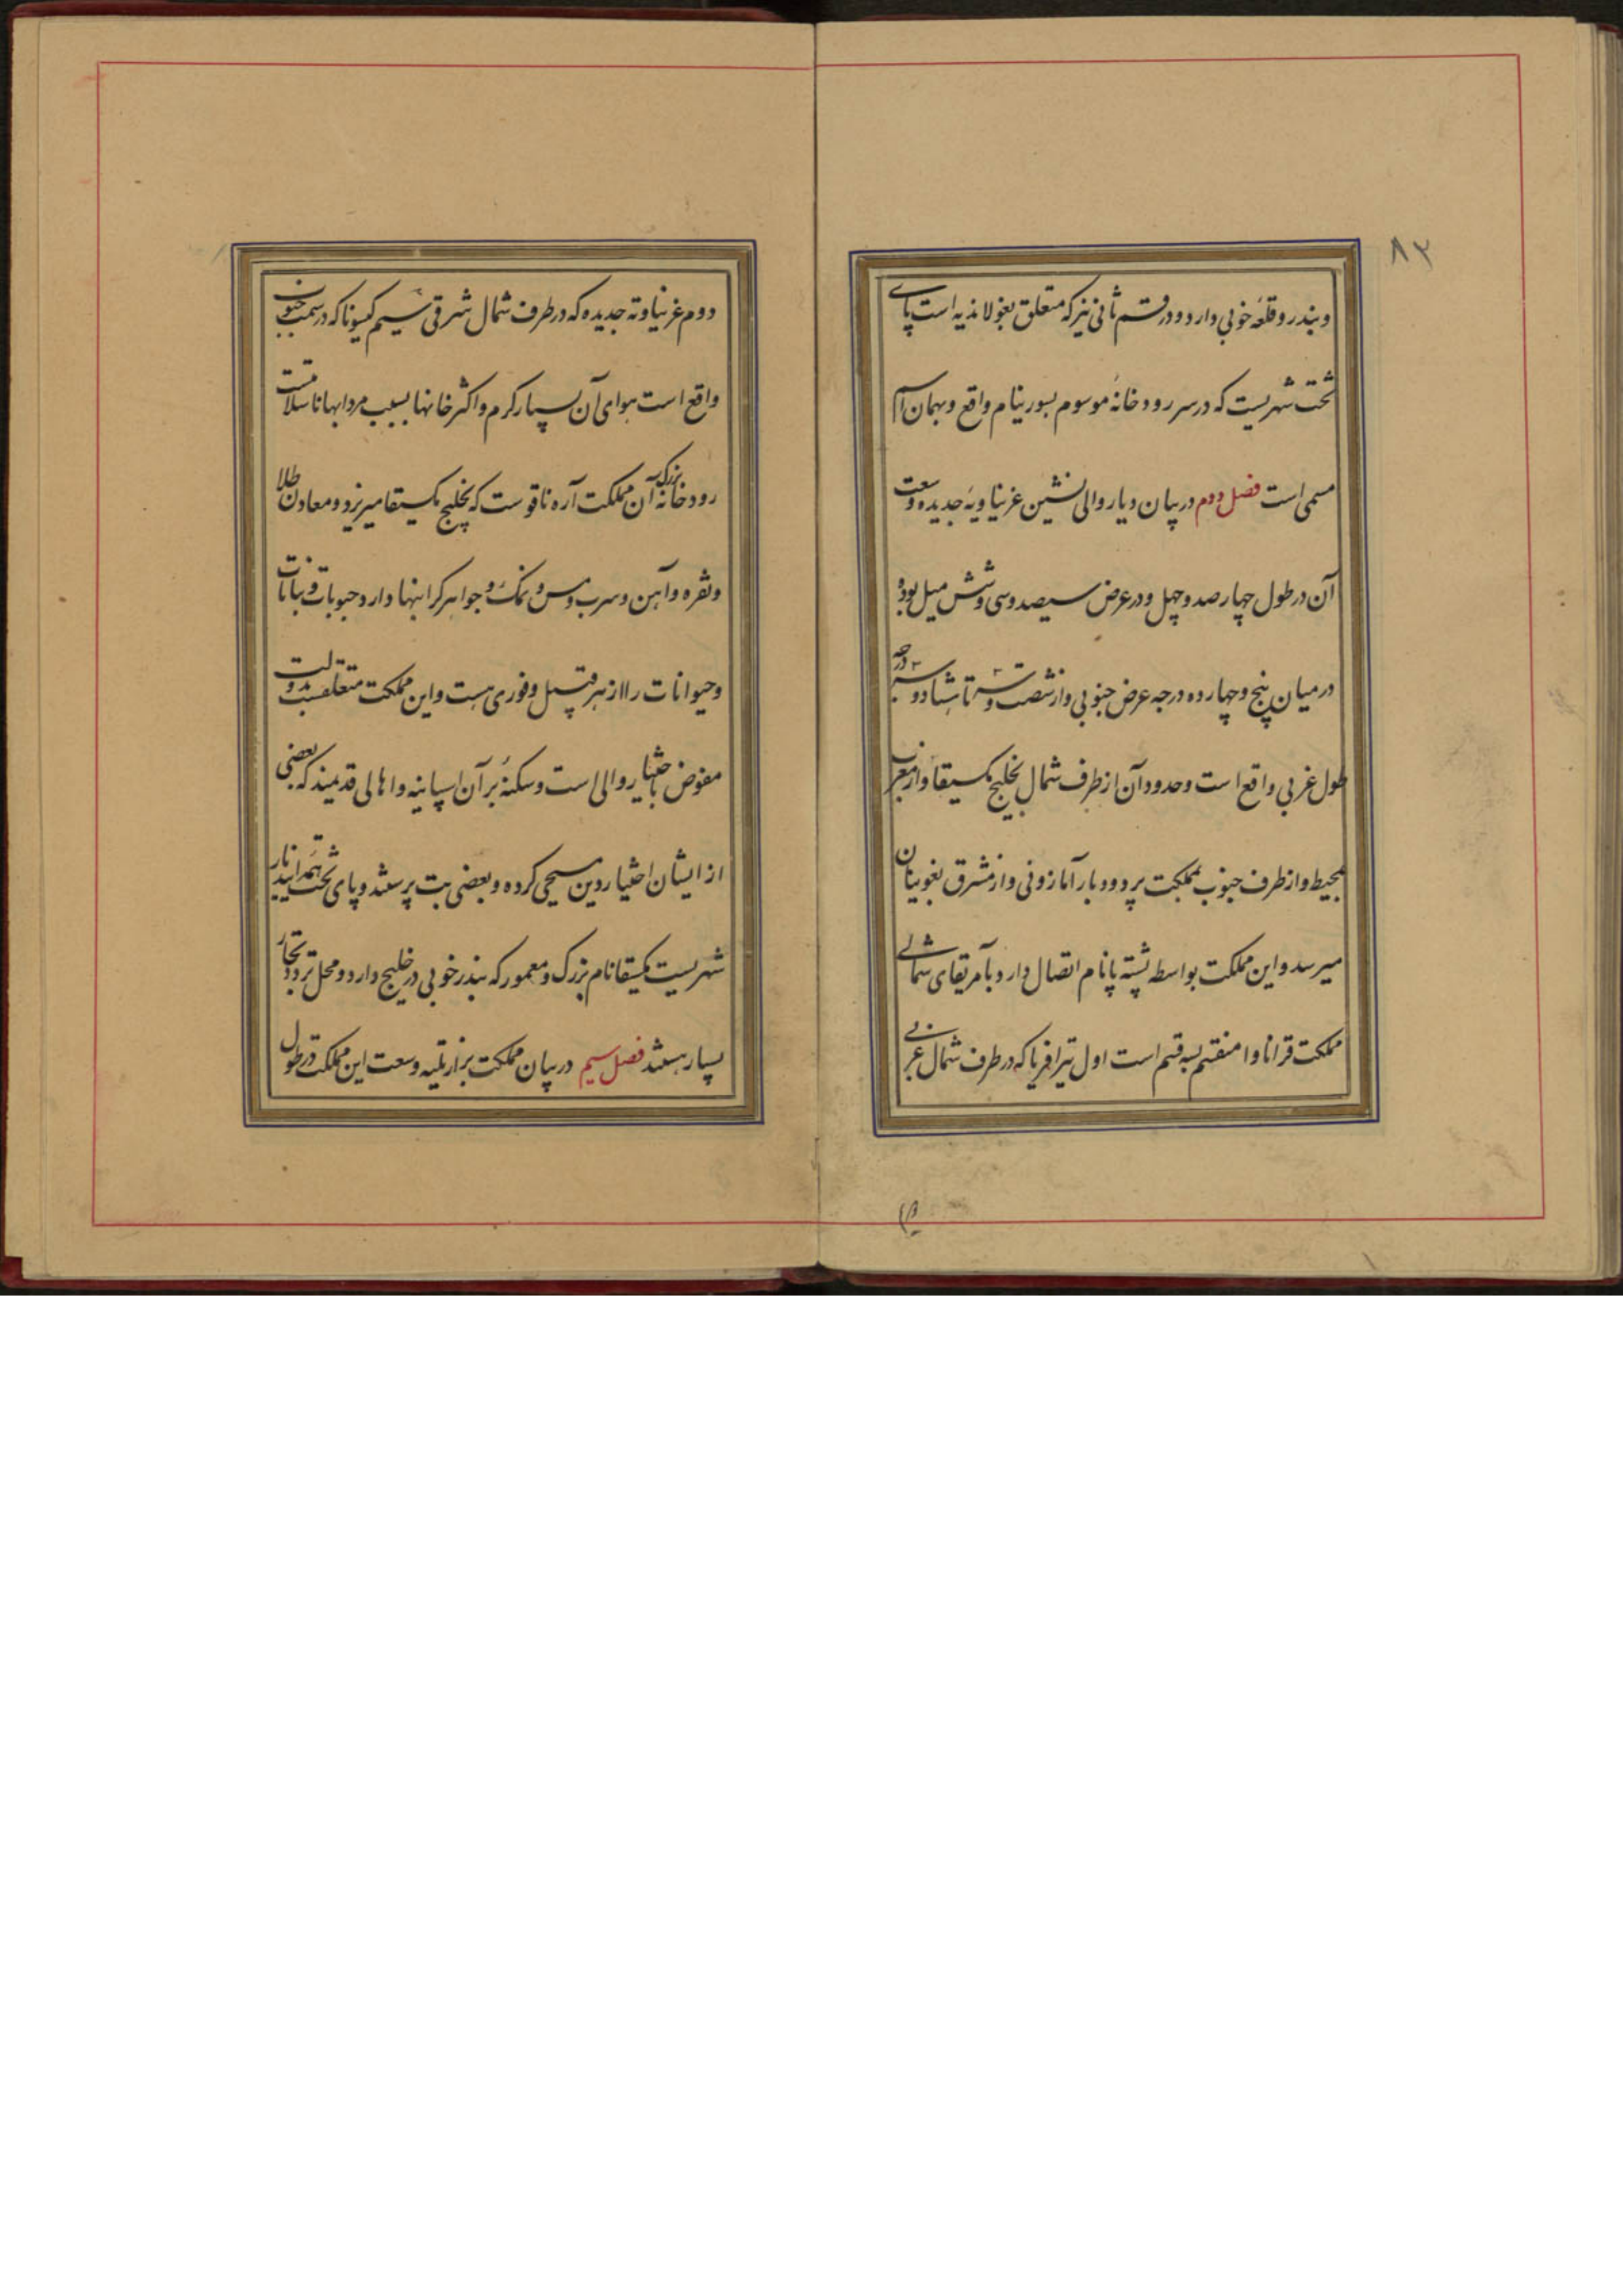 ۸۲
و بندر و قلعهٔ خوبی دارد و در قسم ثانی نیز که متعلق بغولاندیه است پای
تخت شهریست که در سر رودخانهٔ موسوم بسورینام واقع و بهمان اسم
مسمی است فصل دوم در بیان دیار والی نشین غرنیاویهٔ جدیده وسعت
آن در طول چهارصد و چهل و در عرض سیصد و سی و شش میل بود و
در میان پنج و چهارده درجه عرض جنوبی و از شصت و سه تا هشتاد و سه درجه
طول غربی واقع است و حدود آن از طرف شمال بخلیج مکسیقا و از مغرب
بمحیط و از طرف جنوب بمملکت پرو و دیار آمازونی و از مشرق بغویانان
میرسد و این مملکت بواسطه پشتهٔ پانام اتصال دارد بآمریقای شمالی
مملکت قراناوا منقسم بسه قسم است اول تیرافریا که در طرف شمال غربی
دوم غرنیاوته جدیده که در طرف شمال شرقی سیم کیونا که در سمت جنوب
واقع است هوای آن بسیار گرم و اکثر خانها بسبب مردابها ناسلامتست
رودخانهٔ بزرگ آن مملکت آره ناقوست که بخلیج مکسیقا میریزد و معادن طلا
و نقره و آهن و سرب و مس و نمک و جواهر گرانبها دارد حبوبات و نباتات
و حیوانات را از هر قبیل وفوری هست و این مملکت متعلقست بدولت
مفوض باختیار والی است و سکنهٔ بر آن اسپانیه و اهالی قدیمند که بعضی
از ایشان اختیار دین مسیحی کرده و بعضی بت پرستند و پای تخت
شهریست مکیقا نام بزرگ و معمور که بندر خوبی در خلیج دارد و محل تردد تجار
بسیار هستند فصل سیم در بیان مملکت برازیلیه وسعت این مملکت در طول